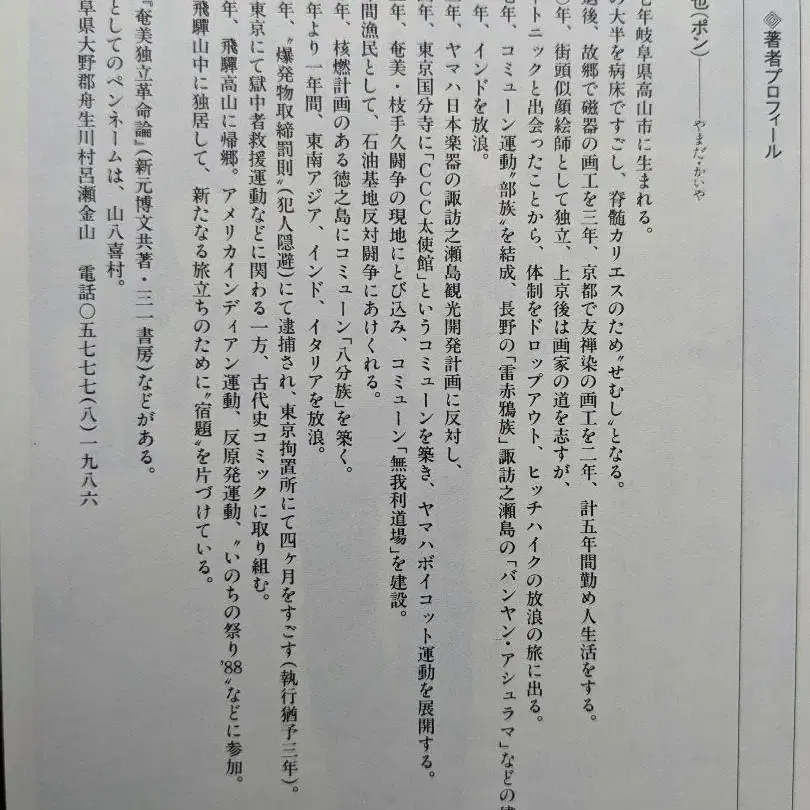 ◈著者プロフィール
也(ポン)――やまだ・かいや
七年岐阜県高山市に生まれる。
の大半を病床ですごし、脊髄カリエスのため〝せむし〟となる。
後、故郷で磁器の画工を三年、京都で友禅染の画工を二年、計五年間勤め人生活をする。
年、街頭似顔絵師として独立、上京後は画家の道を志すが、
ートニックと出会ったことから、体制をドロップアウト、ヒッチハイクの放浪の旅に出る。
年、コミューン運動〝部族〟を結成、長野の「雷赤鴉族」諏訪之瀬島の「バンヤン・アシュラマ」などの建
年、インドを放浪。
年、ヤマハ日本楽器の諏訪之瀬島観光開発計画に反対し、
年、東京国分寺に「CCC太使館」というコミューンを築き、ヤマハボイコット運動を展開する。
年、奄美・枝手久闘争の現地にとび込み、コミューン「無我利道場」を建設。
間漁民として、石油基地反対闘争にあけくれる。
年、核燃計画のある徳之島にコミューン「八分族」を築く。
年より一年間、東南アジア、インド、イタリアを放浪。
年、〝爆発物取締罰則〟(犯人隠避)にて逮捕され、東京拘置所にて四ヶ月をすごす(執行猶予三年)。
東京にて獄中者救援運動などに関わる一方、古代史コミックに取り組む。
年、飛驒高山に帰郷。アメリカインディアン運動、反原発運動、〝いのちの祭り'88〟などに参加。
飛驒山中に独居して、新たなる旅立ちのために〝宿題〟を片づけている。
『奄美独立革命論』(新元博文共著・三一書房)などがある。
としてのペンネームは、山八喜村。
阜県大野郡丹生川村呂瀬金山 電話〇五七七七(八)一九八六